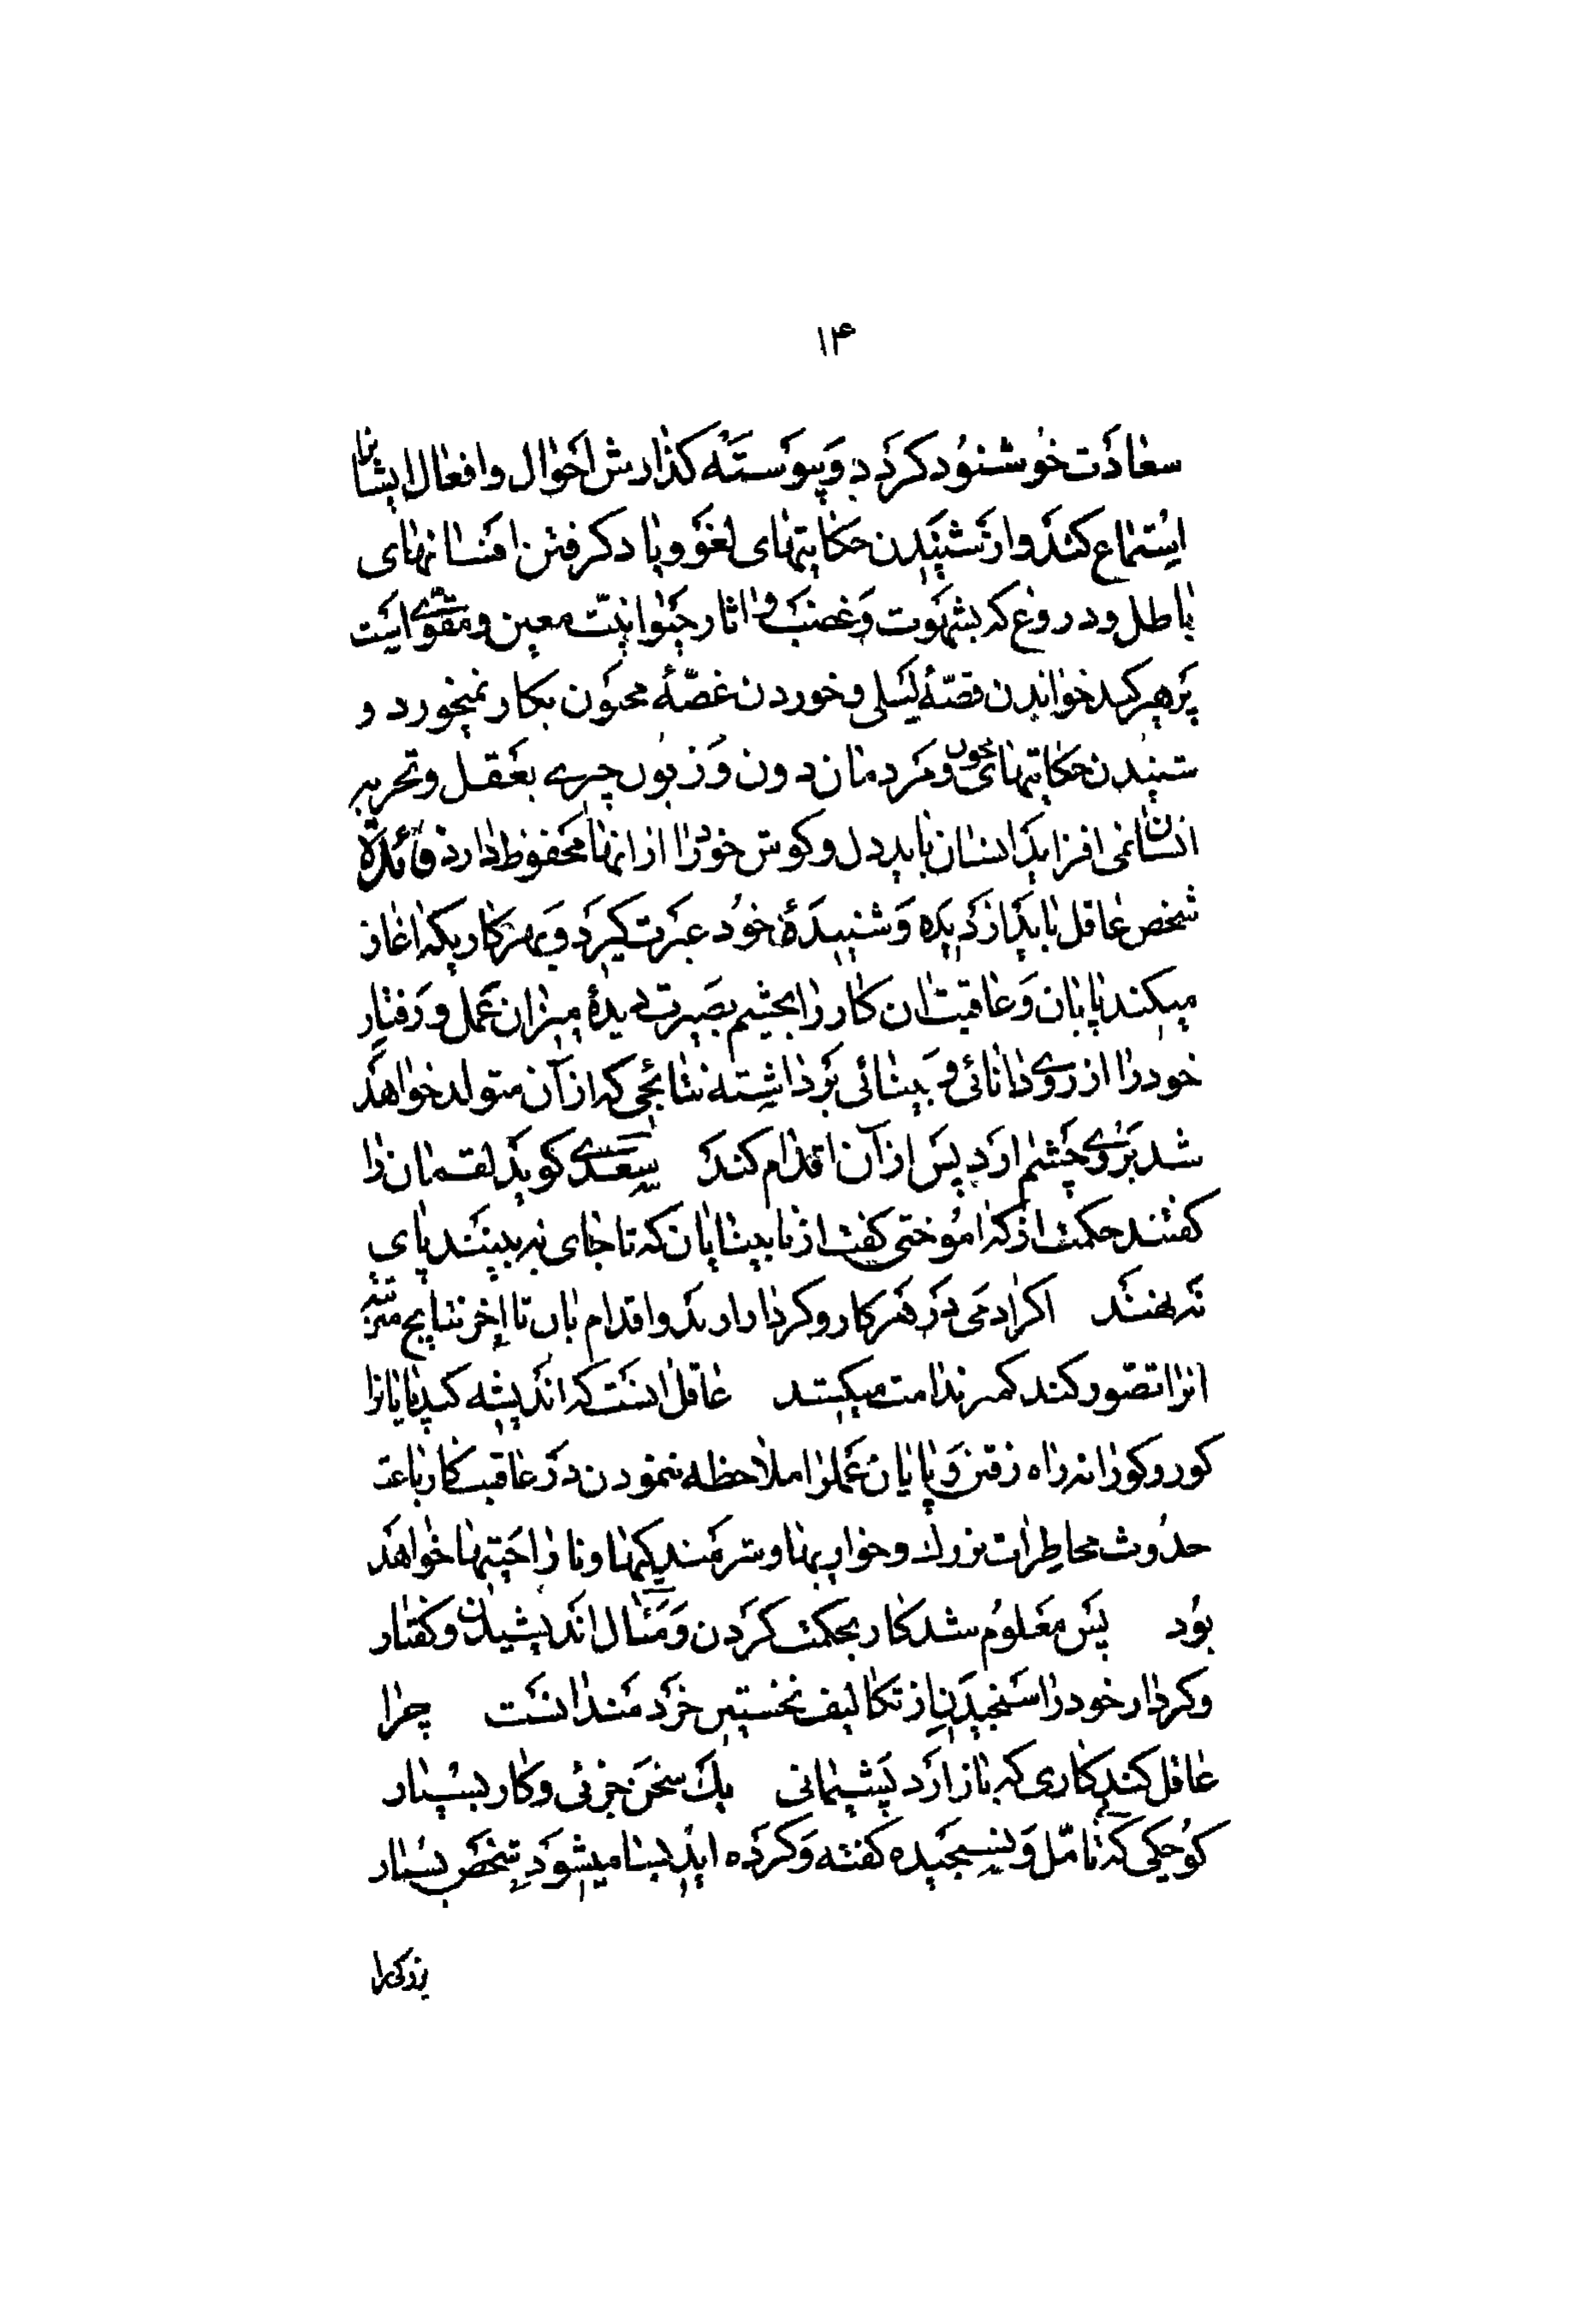 ۱۴
سعادت خوشنود کردد و پیوسته کذارش احوال و افعال ایشانرا
استماع کند و از شنیدن حکایتهای لغو و یاد کرفتن افسانهای
باطل و دروغ که بشهوت و غضب و اثار حیوانیت معین و مقوی است
پرهیز کند خواندن قصّهٔ لیلی و خوردن غصّهٔ مجنون بکار نمیخورد و
شنیدن حکایتهای و مردمان دون و زبون چیزی بعقل و تحریر
انسان نمی افزاید انسان باید دل و کوش خود را از انها محفوظ دارد فائدة
شخص عاقل باید از دیده و شنیدهٔ خود عبرت کیرد و بهر کاریکه اغاز
میکند پایان و عاقبت ان کار را بچشم بصیرت دیدهٔ میزان عمل و رفتار
خود را از روی دانائی و بینائی برداشته نتایجی که از آن متولد خواهد
شد بروی چشم ارد پس از آن اقدام کند سعدی کوید لقمان را
کفتند حکمت از که اموختی کفت از نابینایان که تا جای نه بینند پای
نه نهند اکر ادمی در هر کار و کردار اراده و اقدام بان تا اخر نتایج
انرا تصور کند کمر ندامت میکشد عاقل انست که اندیشه کند پایانرا
کور و کورانه راه رفتن و پایان عملرا ملاحظه ننمودن در عاقبت کار باعث
حدوث مخاطرات بزرك و خواریها و شرمندیکیها و ناراحتیها خواهد
بود پس معلوم شد کار بحکمت کردن و مئال اندیشیدن و کفتار
و کردار خود را سنجیدن از تکالیف نخستین خردمند انست چرا
عاقل کند کاری که باز ارد پشیمانی یك سخن جزئی و کار بسیار
کوچکی که نامّل و نسنجیده کفته و کرده اید بسا میشود شخص بسیار
بزرکی را